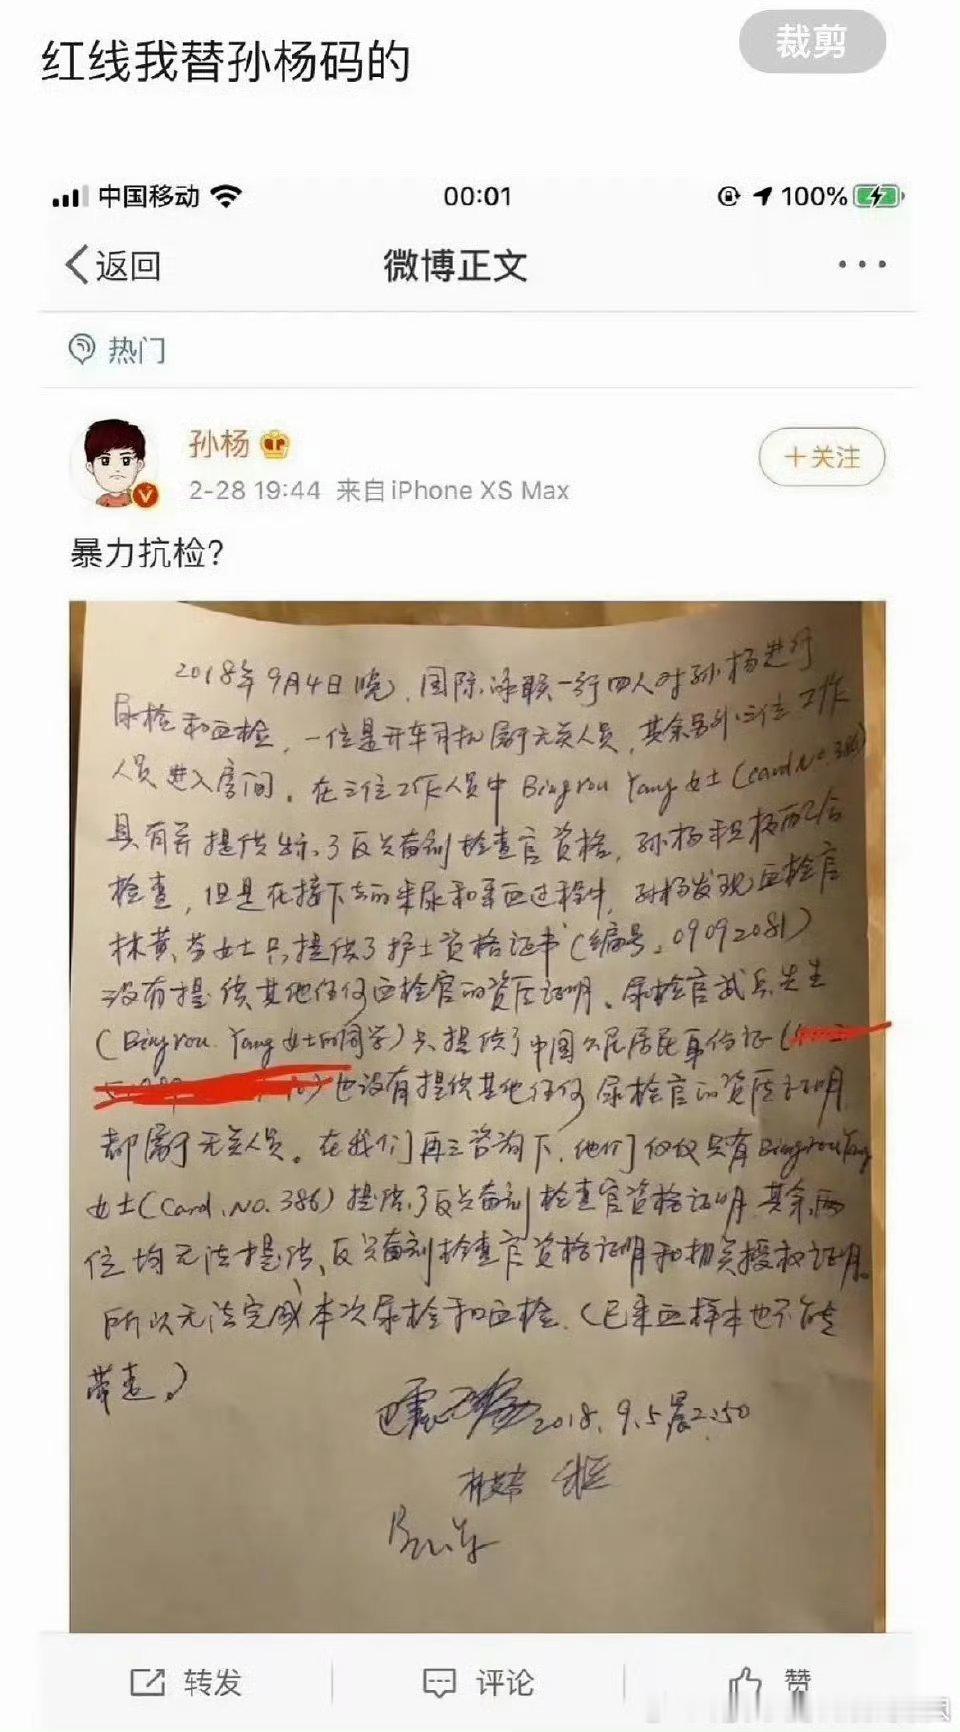 红线我替孙杨码的
裁剪
中国移动
00:01
100%
返回
微博正文
热门
孙杨
2-28 19:44 来自iPhone XS Max
+关注
暴力抗检？
2018年9月4日晚，国际泳联一行四人对孙杨进行
尿检和血检，一位是开车司机属于无关人员，其余另外三位工作
人员进入房间。在三位工作人员中Bingrou Yang女士(card No.386)
具有并提供出示了反兴奋剂检查官资格，孙杨积极配合
检查，但是在接下去的采尿和采血过程中，孙杨发现血检官
林黄芬女士只提供了护士资格证书(编号：09092081)
没有提供其他任何血检官的资质证明。尿检官武兵先生
(Bingrou Yang女士的同学)只提供了中国公民居民身份证(
也没有提供其他任何尿检官的资质证明
都属于无关人员。在我们再三咨询下，他们仅仅只有Bingrou Yang
女士(Card.No.386)提供了反兴奋剂检查官资格证明，其余两
位均无法提供反兴奋剂检查官资格证明和相关授权证明。
所以无法完成本次尿检和血检。(已采血样本也不能
带走。)
2018.9.5晨2:50
转发
评论
赞